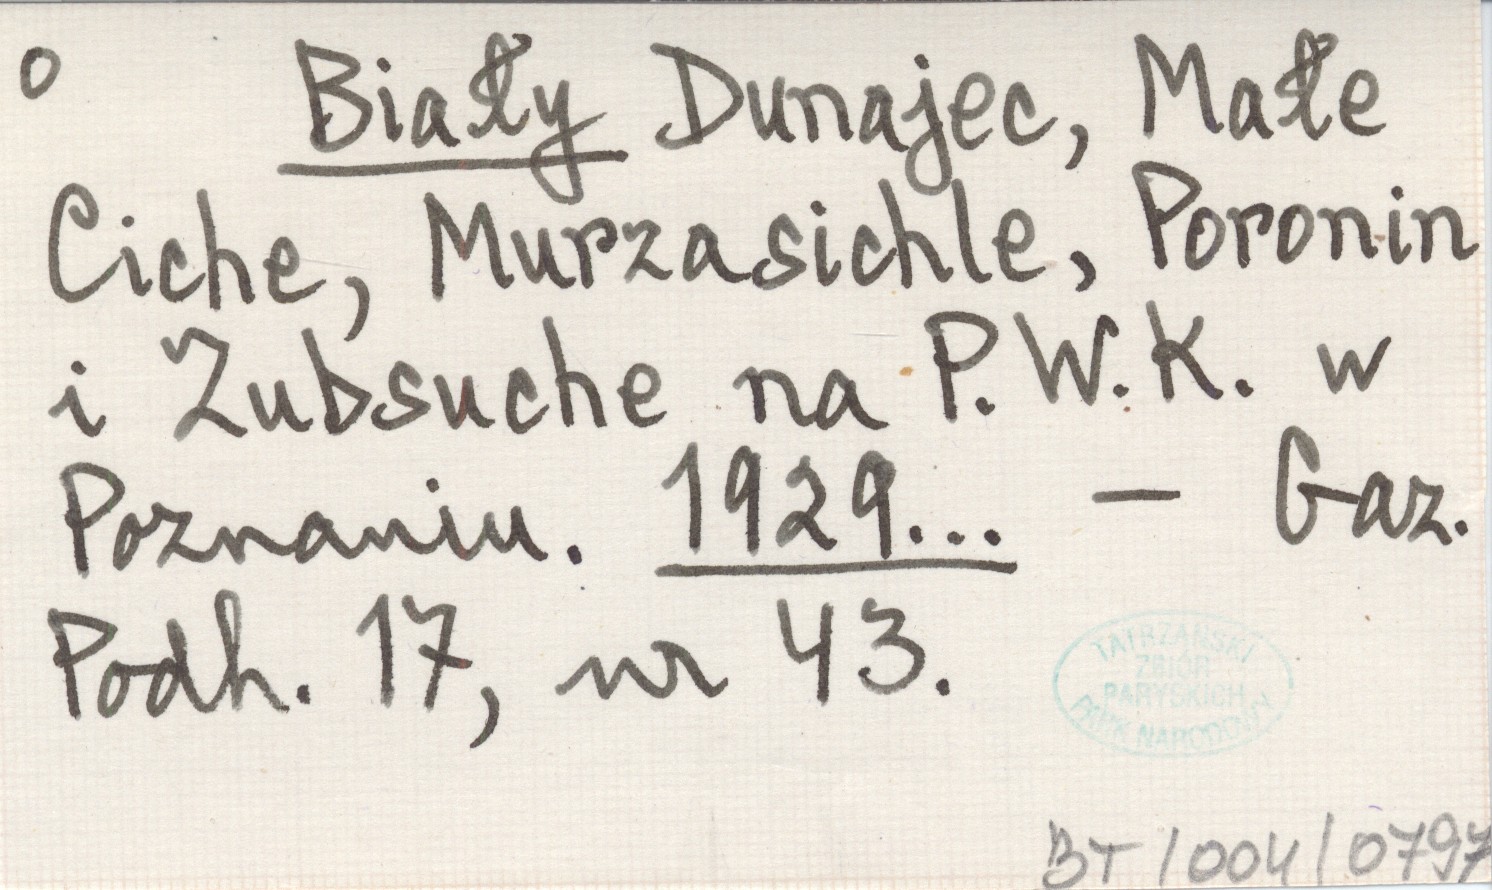 o Biały Dunajec, Małe
Ciche, Murzasichle, Poronin
i Zubsuche na P.W.K. w
Poznaniu. 1929... — Gaz.
Podh. 17, nr 43.
TATRZAŃSKI
ZBIÓR
PARYSKICH
PARK NARODOWY
BT/004/0797